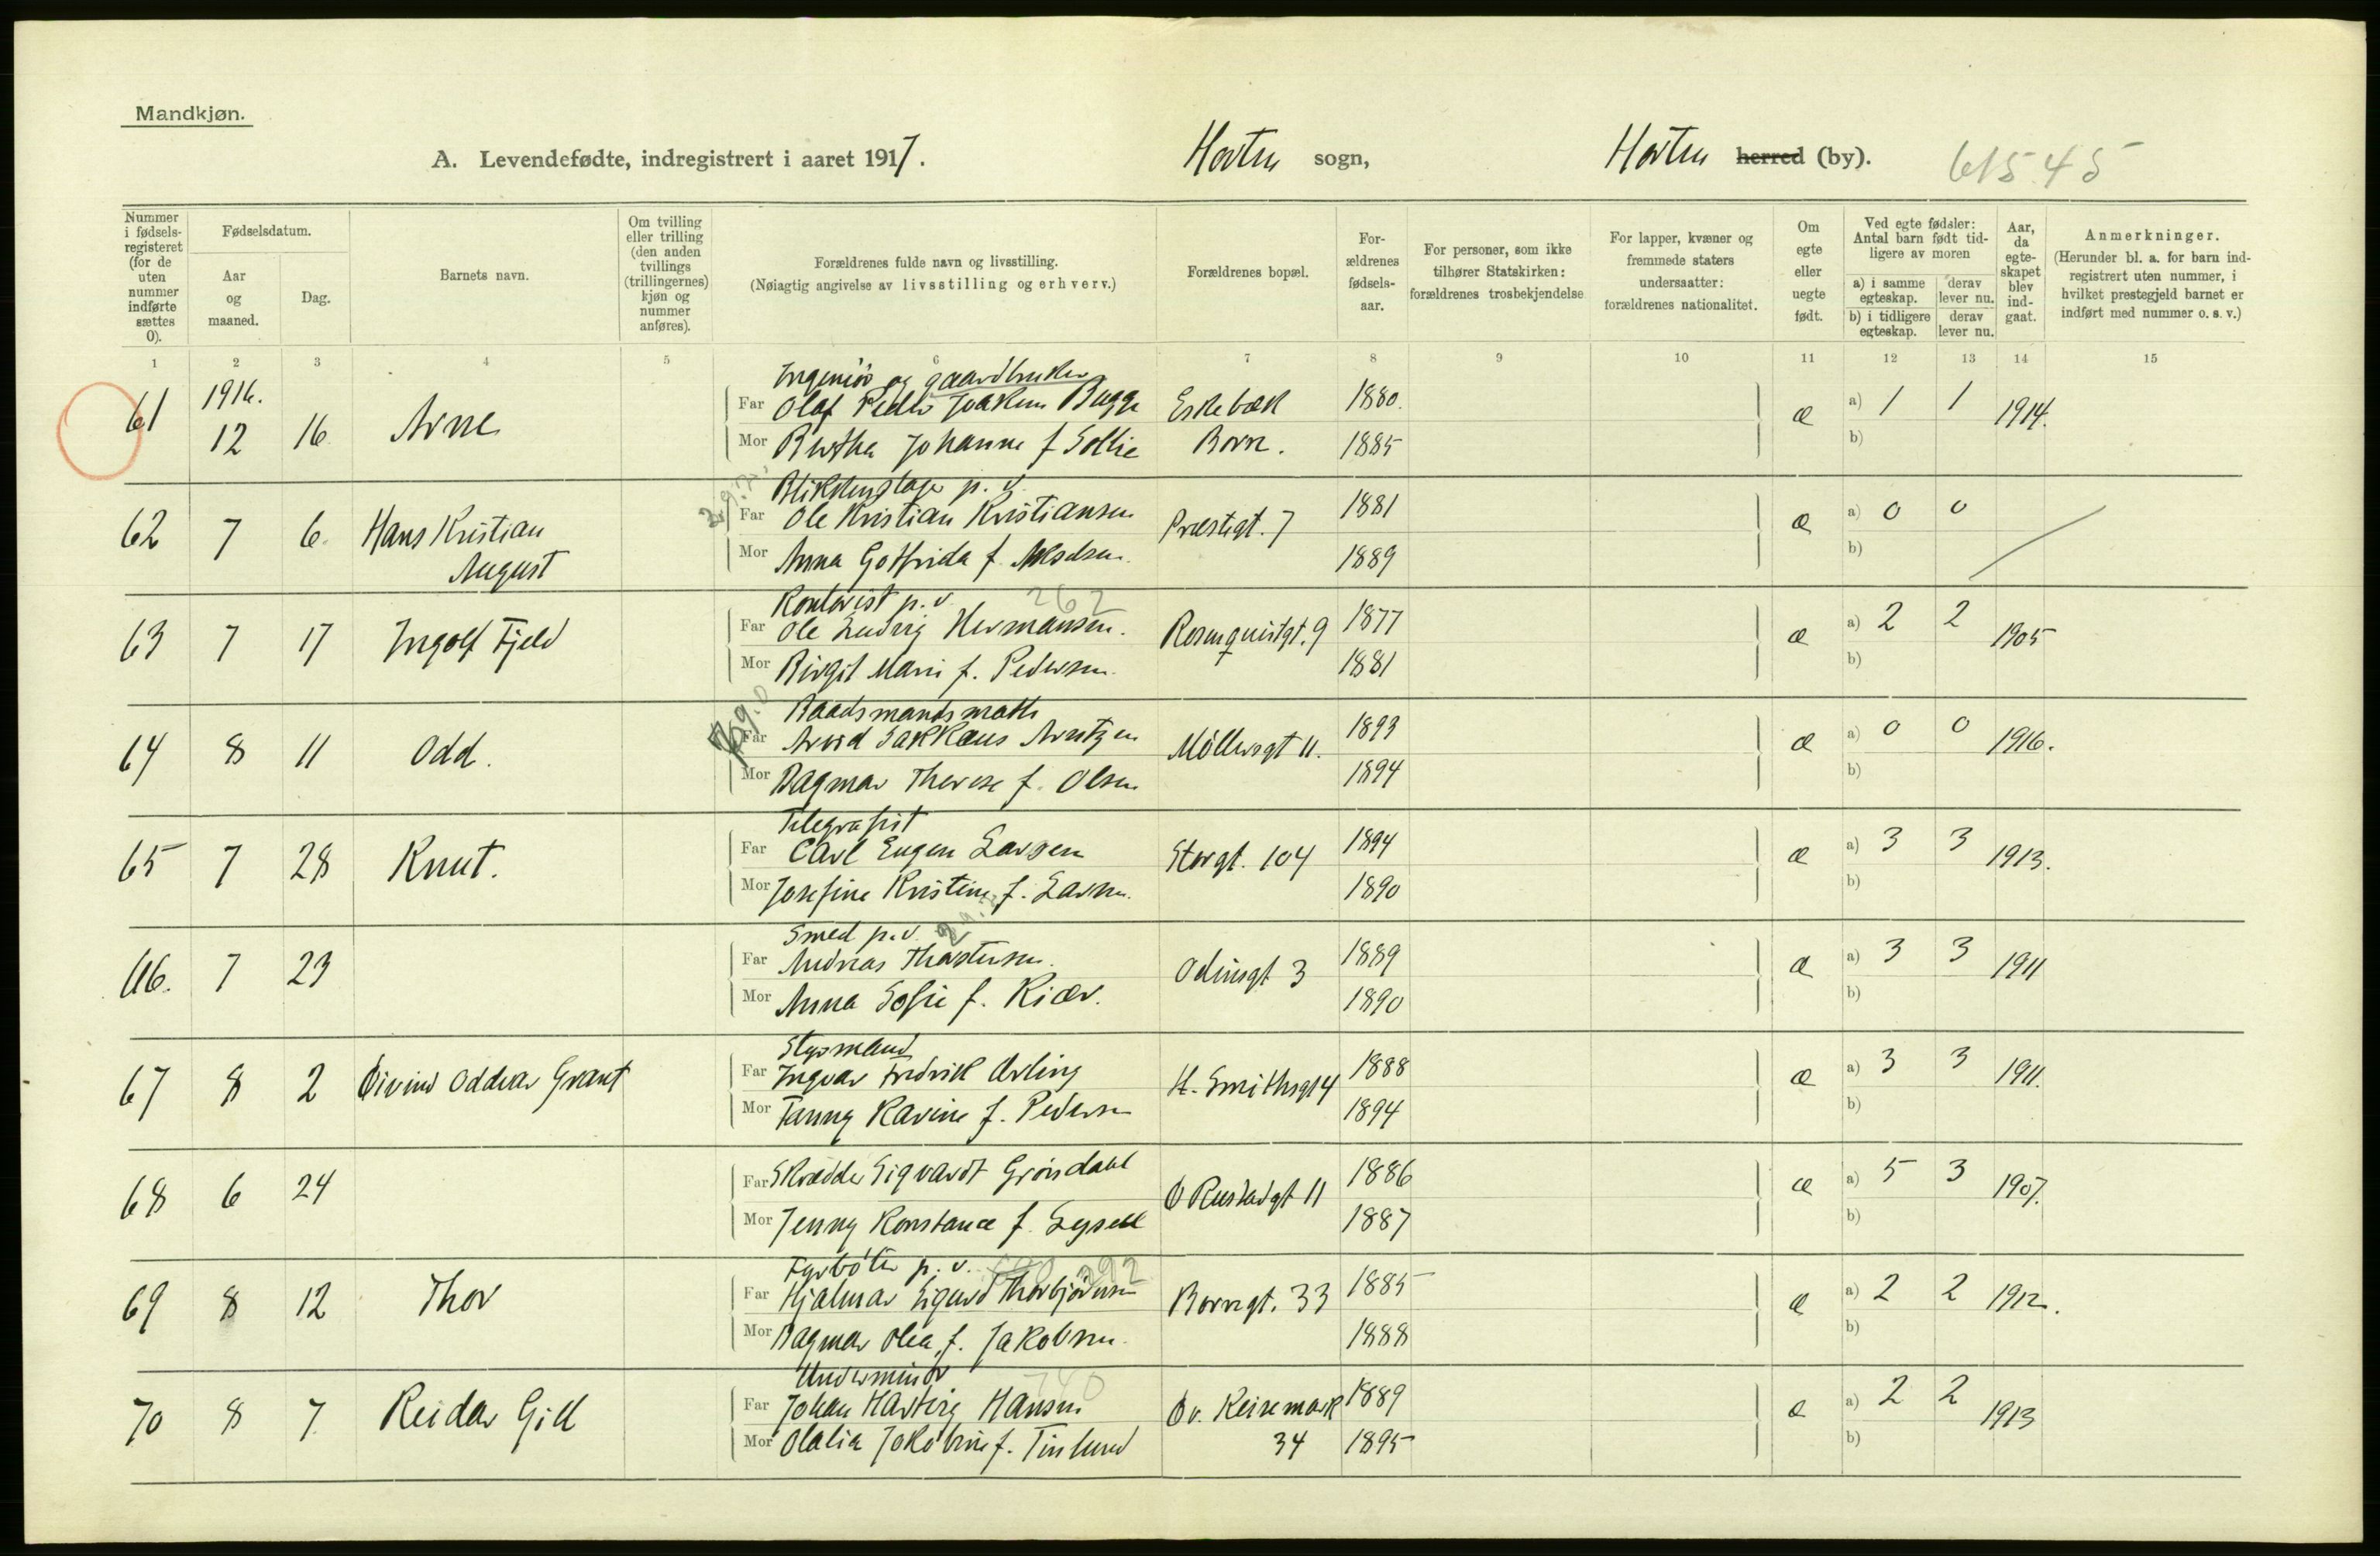 Mandkjøn.
A. Levendefødte, indregistrert i aaret 1917. Horten sogn, Horten herred (by). 61545
Nummer i fødsels-registeret (for de uten nummer indførte sættes 0).
Fødselsdatum.
Aar og maaned.
Dag.
Barnets navn.
Om tvilling eller trilling (den anden tvillings (trillingernes) kjøn og nummer anføres).
Forældrenes fulde navn og livsstilling.
(Nøiagtig angivelse av livsstilling og erhverv.)
Forældrenes bopæl.
For-ældrenes fødsels-aar.
For personer, som ikke tilhører Statskirken: forældrenes trosbekjendelse
For lapper, kvæner og fremmede staters undersaatter: forældrenes nationalitet.
Om egte eller uegte født.
Ved egte fødsler: Antal barn født tid-ligere av moren
a) i samme egteskap. derav lever nu.
b) i tidligere egteskap. derav lever nu.
Aar, da egte-skapet blev ind-gaat.
Anmerkninger.
(Herunder bl. a. for barn ind-registrert uten nummer, i hvilket prestegjeld barnet er indført med nummer o. s. v.)
1 2 3 4 5 6 7 8 9 10 11 12 13 14 15
Ingeniør og gaardbruker
61 1916. 12 16 Arne Far Olaf Peder Joakim Bugge Eskebæk 1880. æ a) 1 1 1914.
Mor Berthe Johanne f Sollie Borre. 1885 b)
Blikkenslager p. v.
62 7 6 Hans Kristian Far Ole Kristian Kristiansen Præstegt. 7 1881 æ a) 0 0
August Mor Anna Gotfrida f. Akselsen. 1889 b)
Kontorist p. v. 262
63 7 17 Ingolf Fjeld Far Ole Ludvig Hermansen. Rosenquistgt. 9 1877 æ a) 2 2 1905
Mor Birgit Marie f. Pedersen. 1881 b)
Baadsmandsmath
64 8 11 Odd. Far Arvid Sakkæus Arntzen Møllersgt 11. 1893 æ a) 0 0 1916.
Mor Dagmar Therese f. Olsen 1894 b)
Telegrafist
65 7 28 Knut. Far Carl Eugen Larsen Storgt. 104 1894 æ a) 3 3 1913.
Mor Josefine Kristine f. Larsen. 1890 b)
Smed p. v.
66. 7 23 Far Andreas Thorstensen. Odinsgt 3 1889 æ a) 3 3 1911
Mor Anna Sofie f. Kiær. 1890 b)
Styrmand
67 8 2 Øivind Oddvar Grant Far Ingvar Fredrik Arling H. Smithsgt 4 1888 æ a) 3 3 1911.
Mor Fanny Karine f. Pedersen 1894 b)
68 6 24 Far Skrædder Sigvardt Grønsdahl O Rustadgt 11 1886 æ a) 5 3 1907.
Mor Jenny Konstance f. Lysell 1887 b)
Fyrbøter p. v. 292
69 8 12 Thor Far Hjalmar Sigurd Thorbjørnsen Borregt. 33 1885 æ a) 2 2 1912.
Mor Dagmar Olea f. Jakobsen. 1888 b)
Underminør 740
70 8 7 Reidar Gill Far Johan Hartvig Hansen Øv. Keisemark 1889 æ a) 2 2 1913
Mor Olalia Jakobine f. Finlund 34 1895 b)